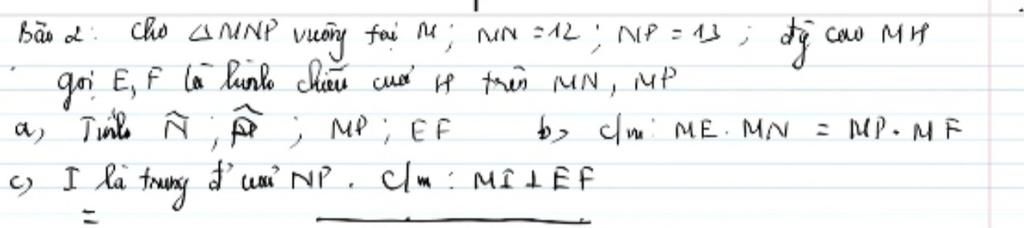 Bài 2: Cho △MNP vuông tại M; MN = 12; NP = 13; đg cao MH
gọi E, F là hình chiếu của H trên MN, MP
a, Tính N̂; P̂; MP; EF b, c/m: ME. MN = MP. MF
c, I là trung đ' của NP. C/m: MI ⊥ EF